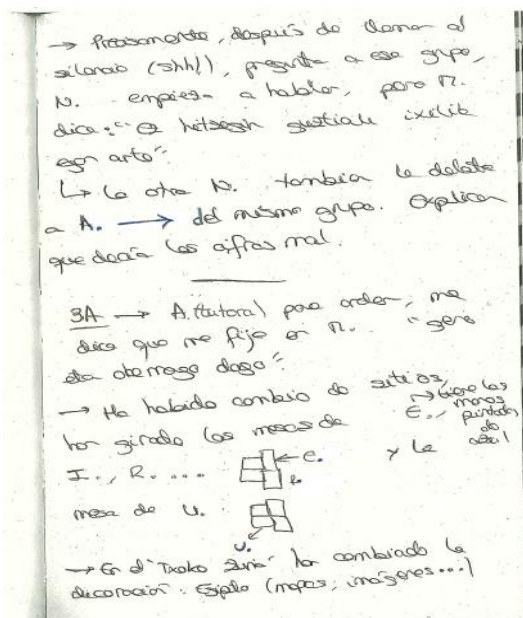 → Precisamente, después de llamar al
silencio (shh!), pregunta a ese grupo,
N. empieza a hablar, pero M.
dice: "Ez hitzegin guztiak ixilik
egon arte".
↳ La otra N. también le delata
a A. → del mismo grupo. Explican
que decía las cifras mal.
3A → A. (tutora) pone orden, me
dice que me fije en M. "gero
eta okerrago dago".
→ Ha habido cambio de sitios,
han girado las mesas de E., → tiene las manos pintadas de azul
I., R. ... ← E. y la
R.
mesa de U.
U.
→ En el "Txoko Zuria" han cambiado la
decoración: Egipto (mapas, imágenes...)